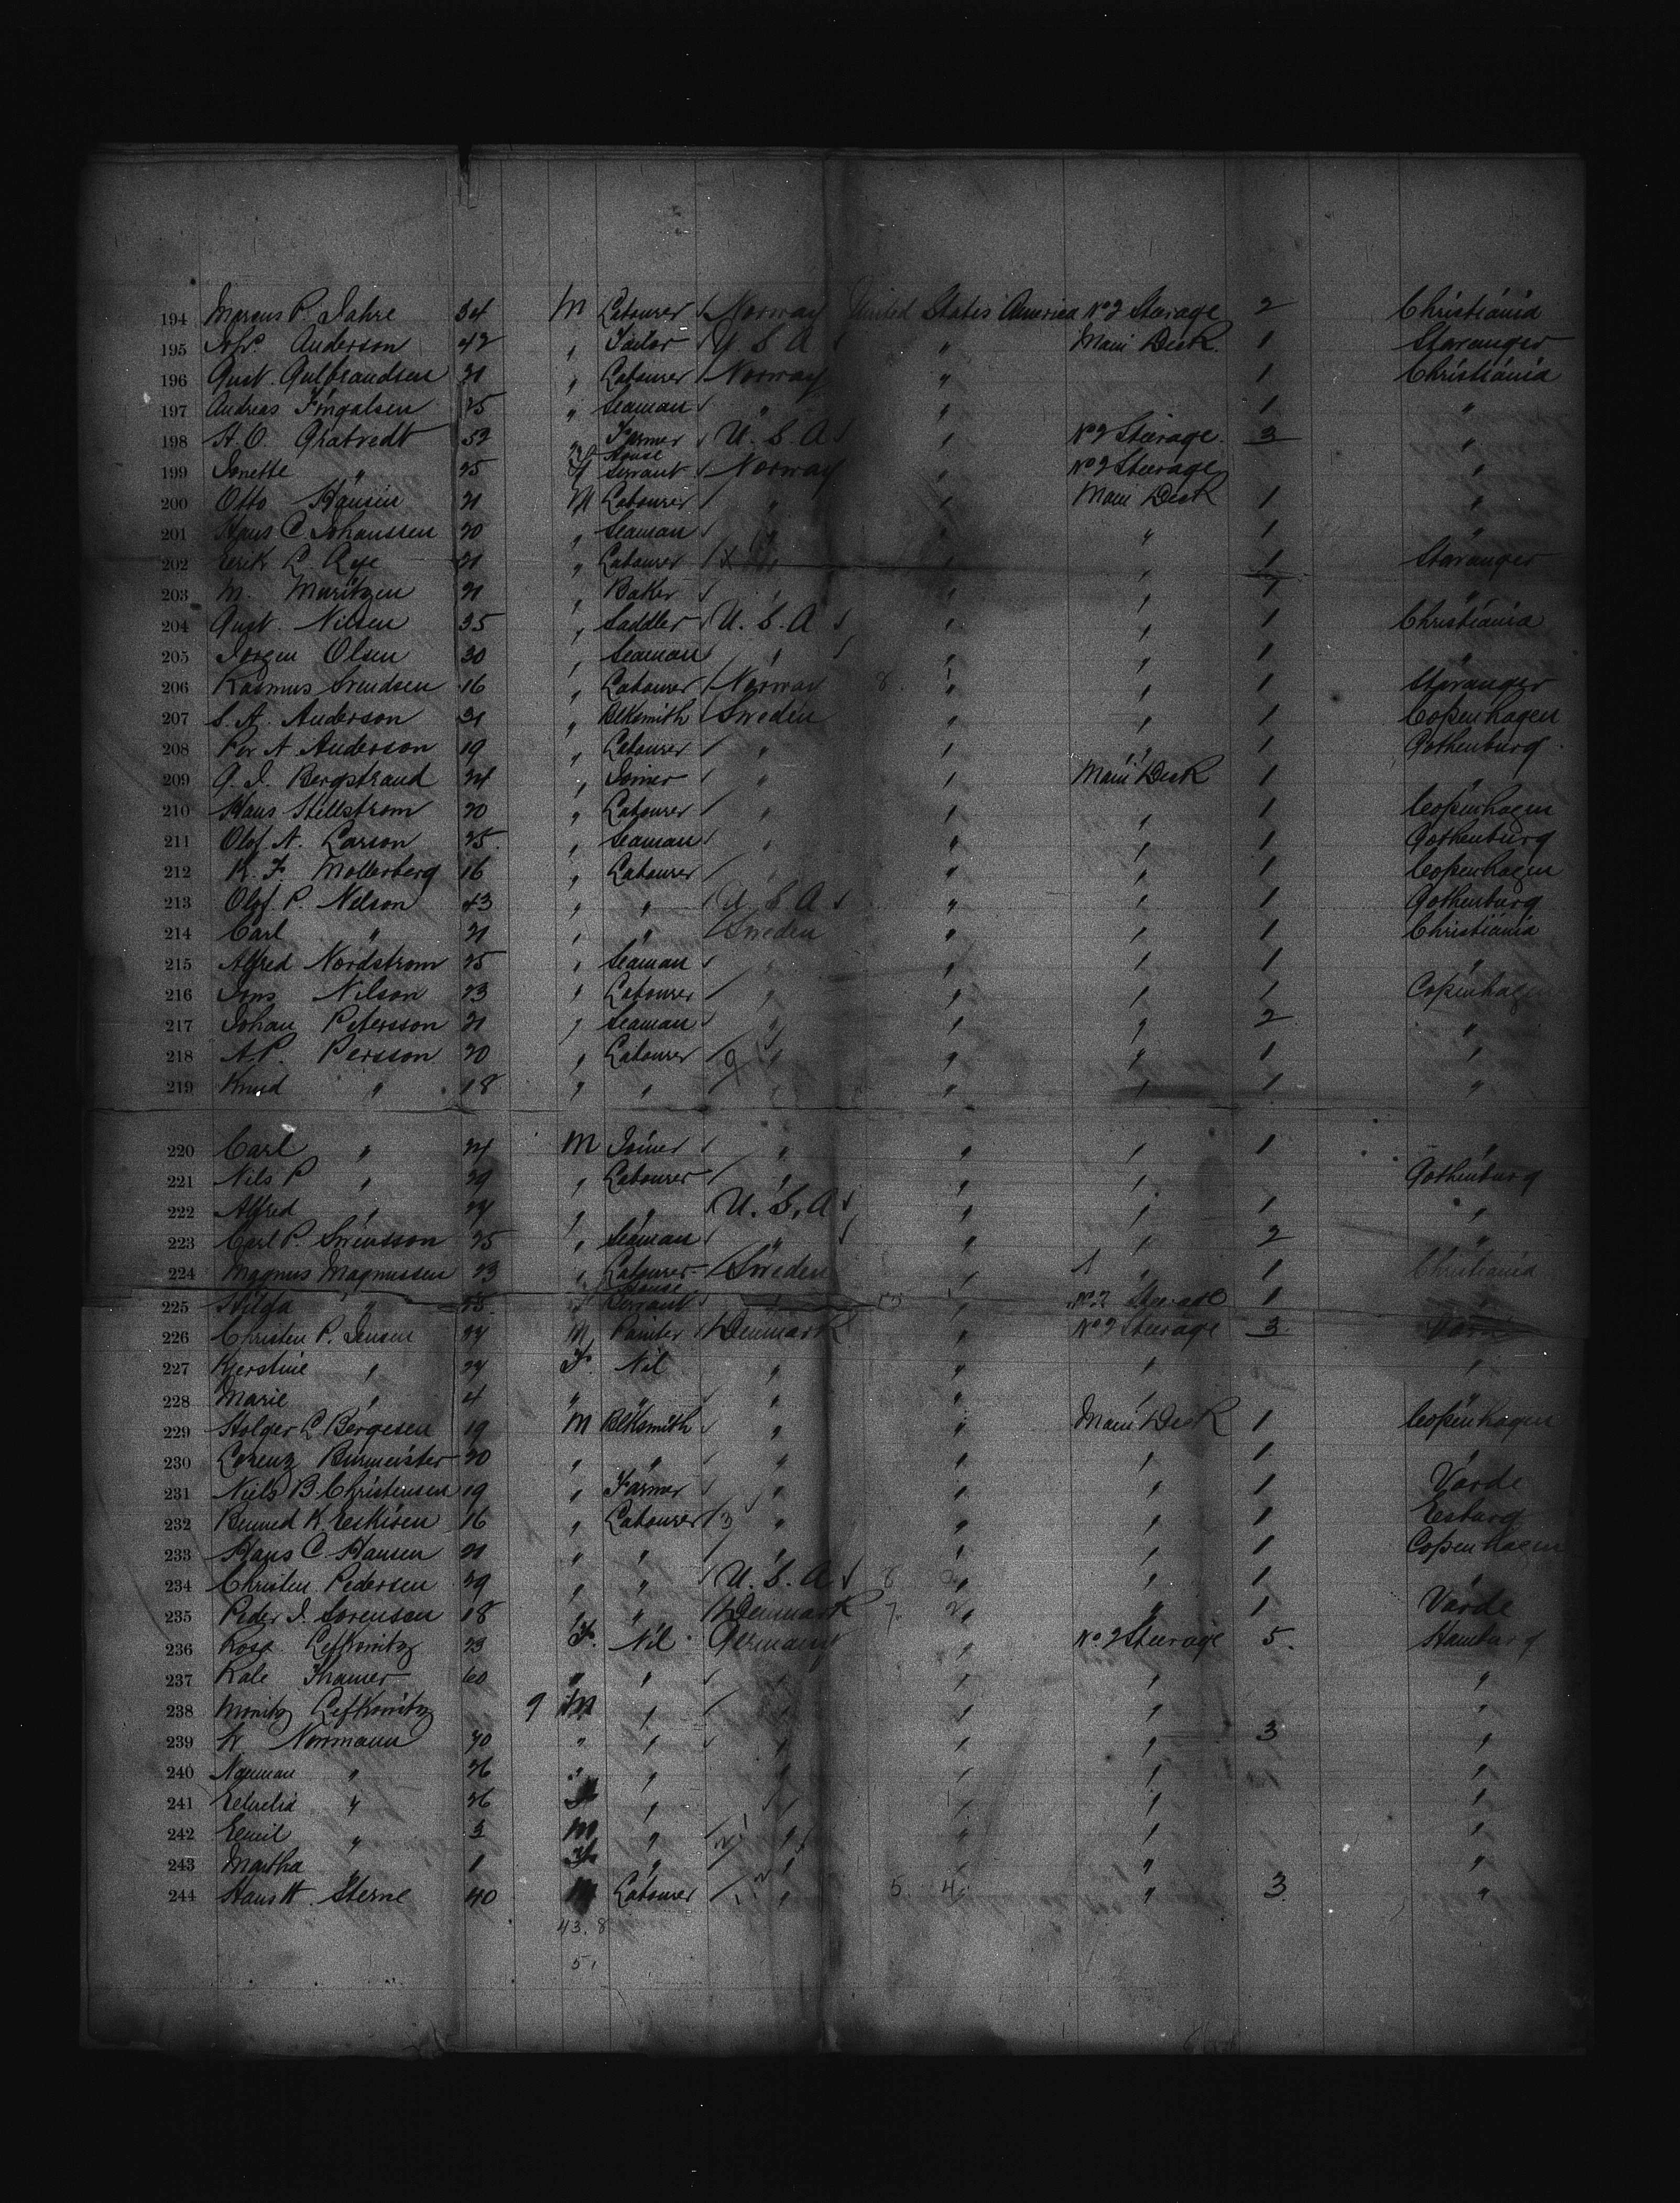 194 Marcus P. Jahre 34 M Labourer Norway United States America No 2 Steerage 2 Christiania
195 Anderson 42 " Tailor U S A " Main Deck 1 Stavanger
196 Gust. Gulbrandsen 21 " Labourer Norway " 1 Christiania
197 Andreas Fingalsen 25 " Seaman " " 1 "
198 H. O. Gratvedt 52 " Farmer U. S. A " No 2 Steerage 3 "
199 Jonette " 25 House Servant Norway " No 2 Steerage "
200 Otto Hansen 21 M Labourer " " Main Deck 1 "
201 Hans C. Johanssen 20 " Seaman " " " 1 "
202 Eerik L. Rye 21 " Labourer " " " 1 Stavanger
203 M. Muritzen 21 " Baker " " " 1 "
204 Gust. Nilsen 35 " Saddler U. S. A " " 1 Christiania
205 Jorgen Olsen 30 " Seaman " " " 1 "
206 Rasmus Svendsen 16 " Labourer Norway 8 " " 1 Stavanger
207 S. A. Anderson 31 " Blksmith Sweden " " 1 Copenhagen
208 Per A. Anderson 19 " Labourer " " " 1 Gothenburg
209 G. I. Bergstrand 24 " Joiner " " Main Deck 1 "
210 Hans Hellstrom 20 " Labourer " " " 1 Copenhagen
211 Olof. N. Larson 25 " Seaman " " " 1 Gothenburg
212 K. F. Mollerberg 16 " Labourer " " " 1 Copenhagen
213 Olof. P. Nelson 43 " " U S A " " 1 Gothenburg
214 Carl " 21 " " Sweden " " 1 Christiania
215 Alfred Nordstrom 25 " Seaman " " " 1 "
216 Jons Nilson 23 " Labourer " " " 1 Copenhagen
217 Johan Petersson 21 " Seaman " " " 2 "
218 A. P. Persson 20 " Labourer " " " 1 "
219 Knud " 18 " " " " " 1 "
220 Carl " 24 M Joiner " " " 1 "
221 Nils P " 29 " Labourer " " " Gothenburg
222 Alfred " 24 " " U. S. A " " 1 "
223 Carl P. Svensson 25 " Seaman " " " 2 "
224 Magnus Magnussen 23 " Labourer Sweden " " 1 Christiania
225 Hilda " House Servant " " No 2 Steerage 1
226 Christen P. Jensen 24 M Painter Denmark " No 2 Steerage 3
227 Kjerstine " 24 F. Nil " " " "
228 Marie " 4 " " " " "
229 Holger C Bergesen 19 M Blksmith " " Main Deck 1 Copenhagen
230 Lorenz Burmeister 20 " " " " " 1 "
231 Niels B. Christensen 19 " Farmer " " " 1 Varde
232 Benned K. Eskisen 16 " Labourer " " " 1 Esburg
233 Hans C. Hansen 21 " " " " " 1 Copenhagen
234 Christen Pedersen 29 " " U. S. A 8 " " 1 "
235 Peder I. Sorensen 18 " " Denmark 7 2 " " 1 Varde
236 Rosa Lefkowitz 23 F. Nil Germany " No 2 Steerage 5. Hamburg
237 Kale Thamer 60 " " " " " "
238 Moritz Lefkowitz 9 M " " " " "
239 W Normann 70 " " " " " 3 "
240 Nauman " 26 " " " " " "
241 " 26 F " " " " "
242 Eemil " 3 M " " " " "
243 Martha 1 F " " " "
244 Hans H. Sterne 40 M Labourer " 5 4 " 3 "
43. 8
51